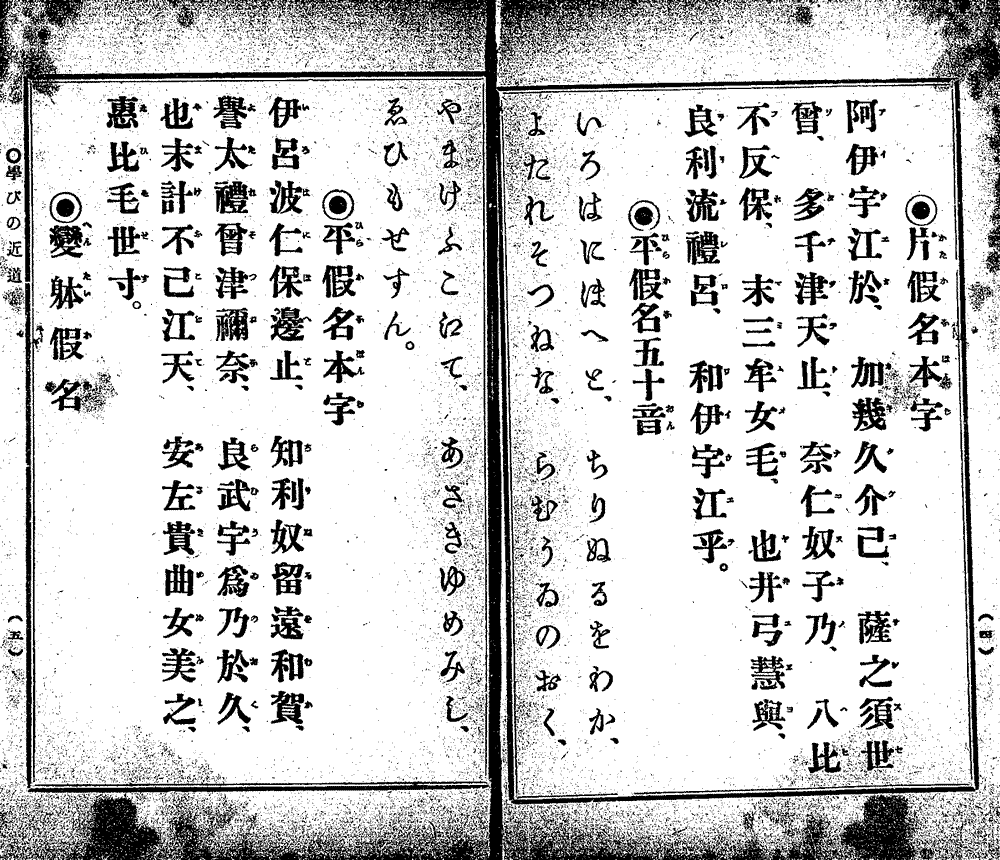 ◉片假名本字
阿伊宇江於、　加幾久介己、　薩之須世
曾、　多千津天止、　奈仁奴子乃、　八比
不反保、　末三牟女毛、　也井弓慧與、
良利流禮呂、　和伊宇江乎。
◉平假名五十音
いろはにほへと、　ちりぬるをわか、
よたれそつねな、　らむうゐのおく、
（四）
やまけふこえて、　あさきゆめみし、
ゑひもせすん。
◉平假名本字
伊呂波仁保邊止、　知利奴留遠和賀、
譽太禮曾津禰奈、　良武宇爲乃於久、
也末計不己江天、　安左貴曲女美之、
惠比毛世寸。
◉變躰假名
○學びの近道
（五）